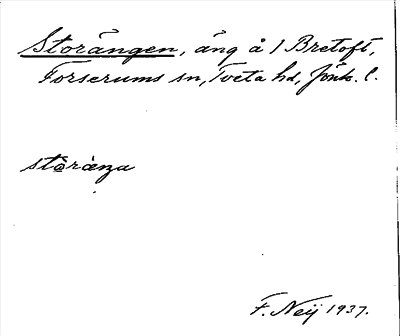 Storängen, äng å 1 Bretoft,
Forserums sn, Tveta hd, Jönk. l.
stò̂ràŋa
F. Neij 1937.